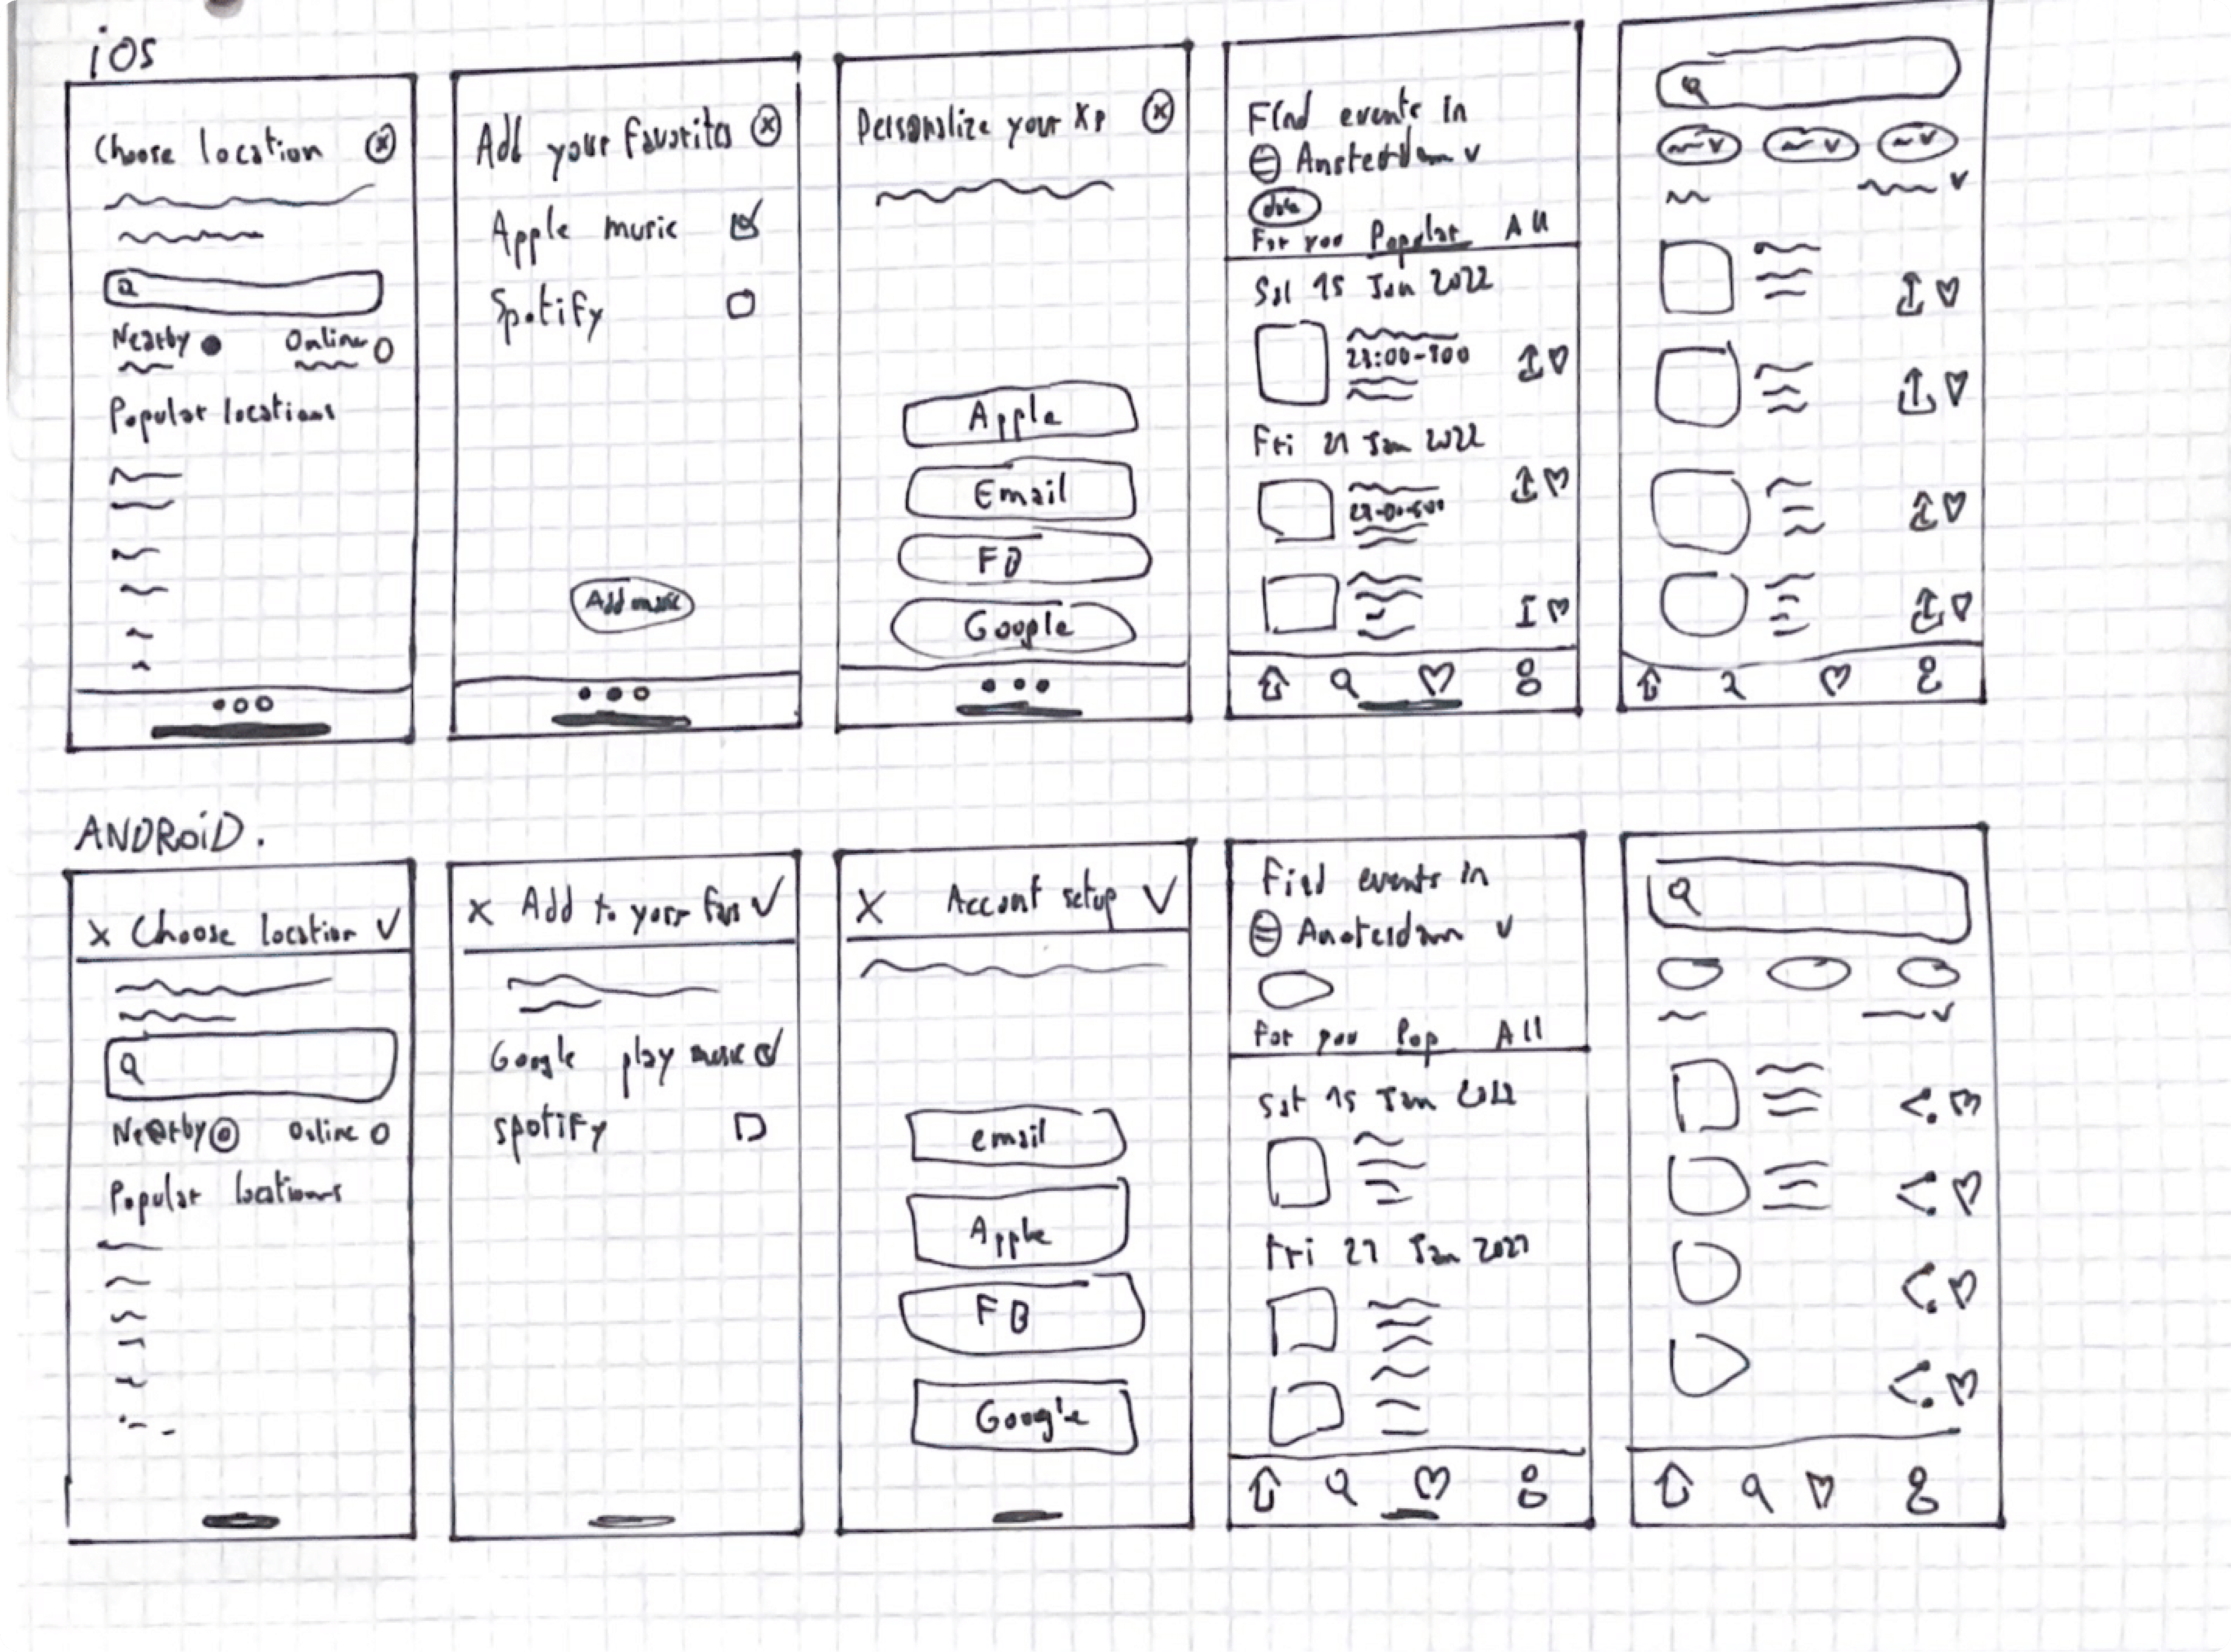 iOS
Choose location
Nearby
Online
Popular locations
Add your favorites
Apple music
Spotify
Add music
Personalize your Xp
Apple
Email
FB
Google
Find events in
Amsterdam
For you Popular All
Sat 15 Jan 2022
Fri 21 Jan 2022
ANDROiD.
X Choose location
Nearby
Online
Popular locations
X Add to your favs
Google play music
spotify
X Account setup
email
Apple
FB
Google
Find events in
Amsterdam
For you Pop All
Sat 15 Jan 2022
Fri 21 Jan 2021